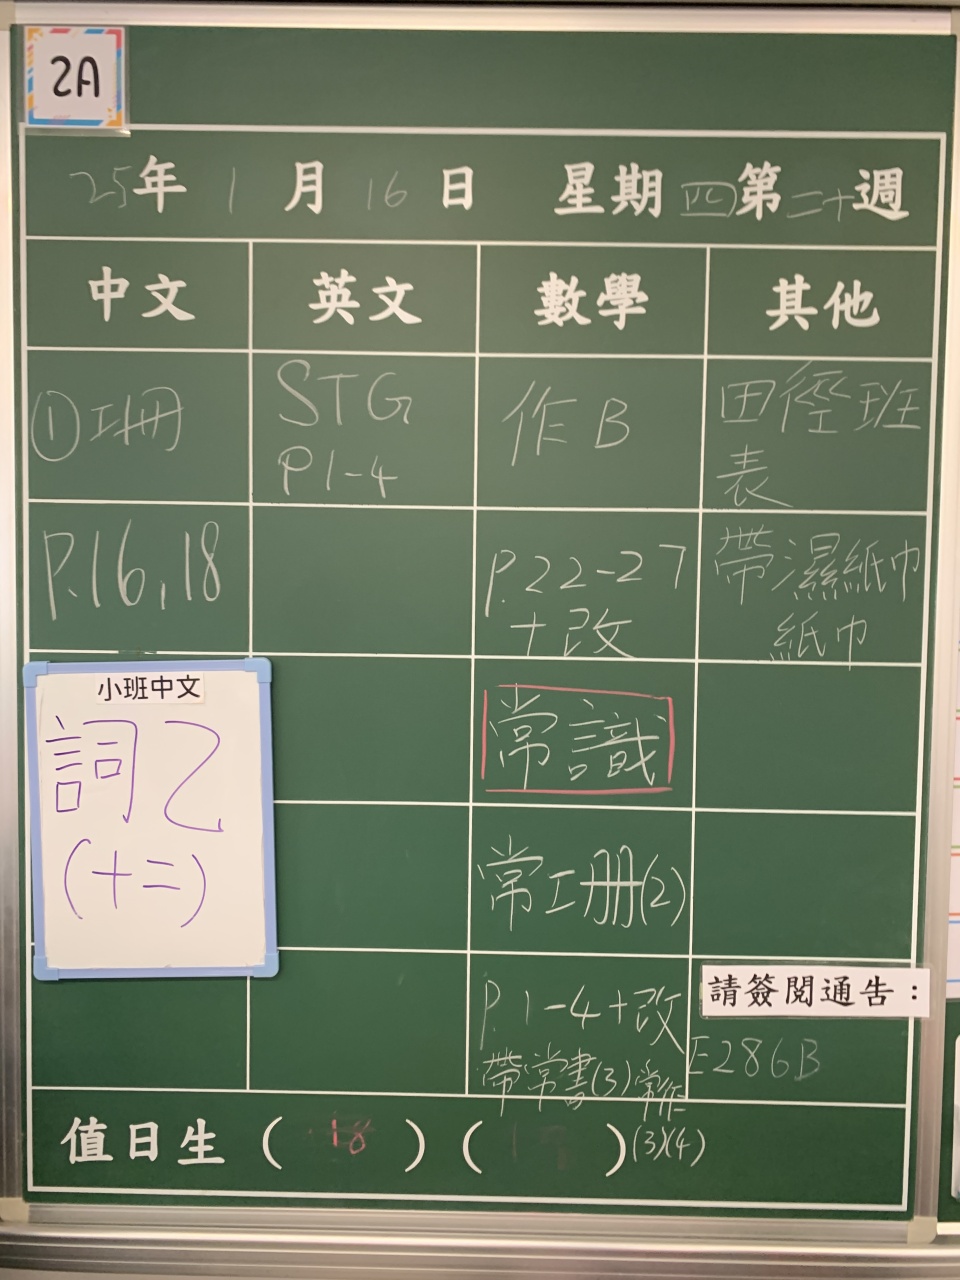 2A
25年 1月 16日 星期四第二十週
中文 英文 數學 其他
①工冊 STG P1-4 作B 田徑班表
P.16,18 P.22-27+改 帶濕紙巾 紙巾
小班中文
詞乙
(十二)
常識
常工册(2)
P.1-4+改
帶常書(3)常作(3)(4)
請簽閱通告：
E286B
值日生 (18) ( )